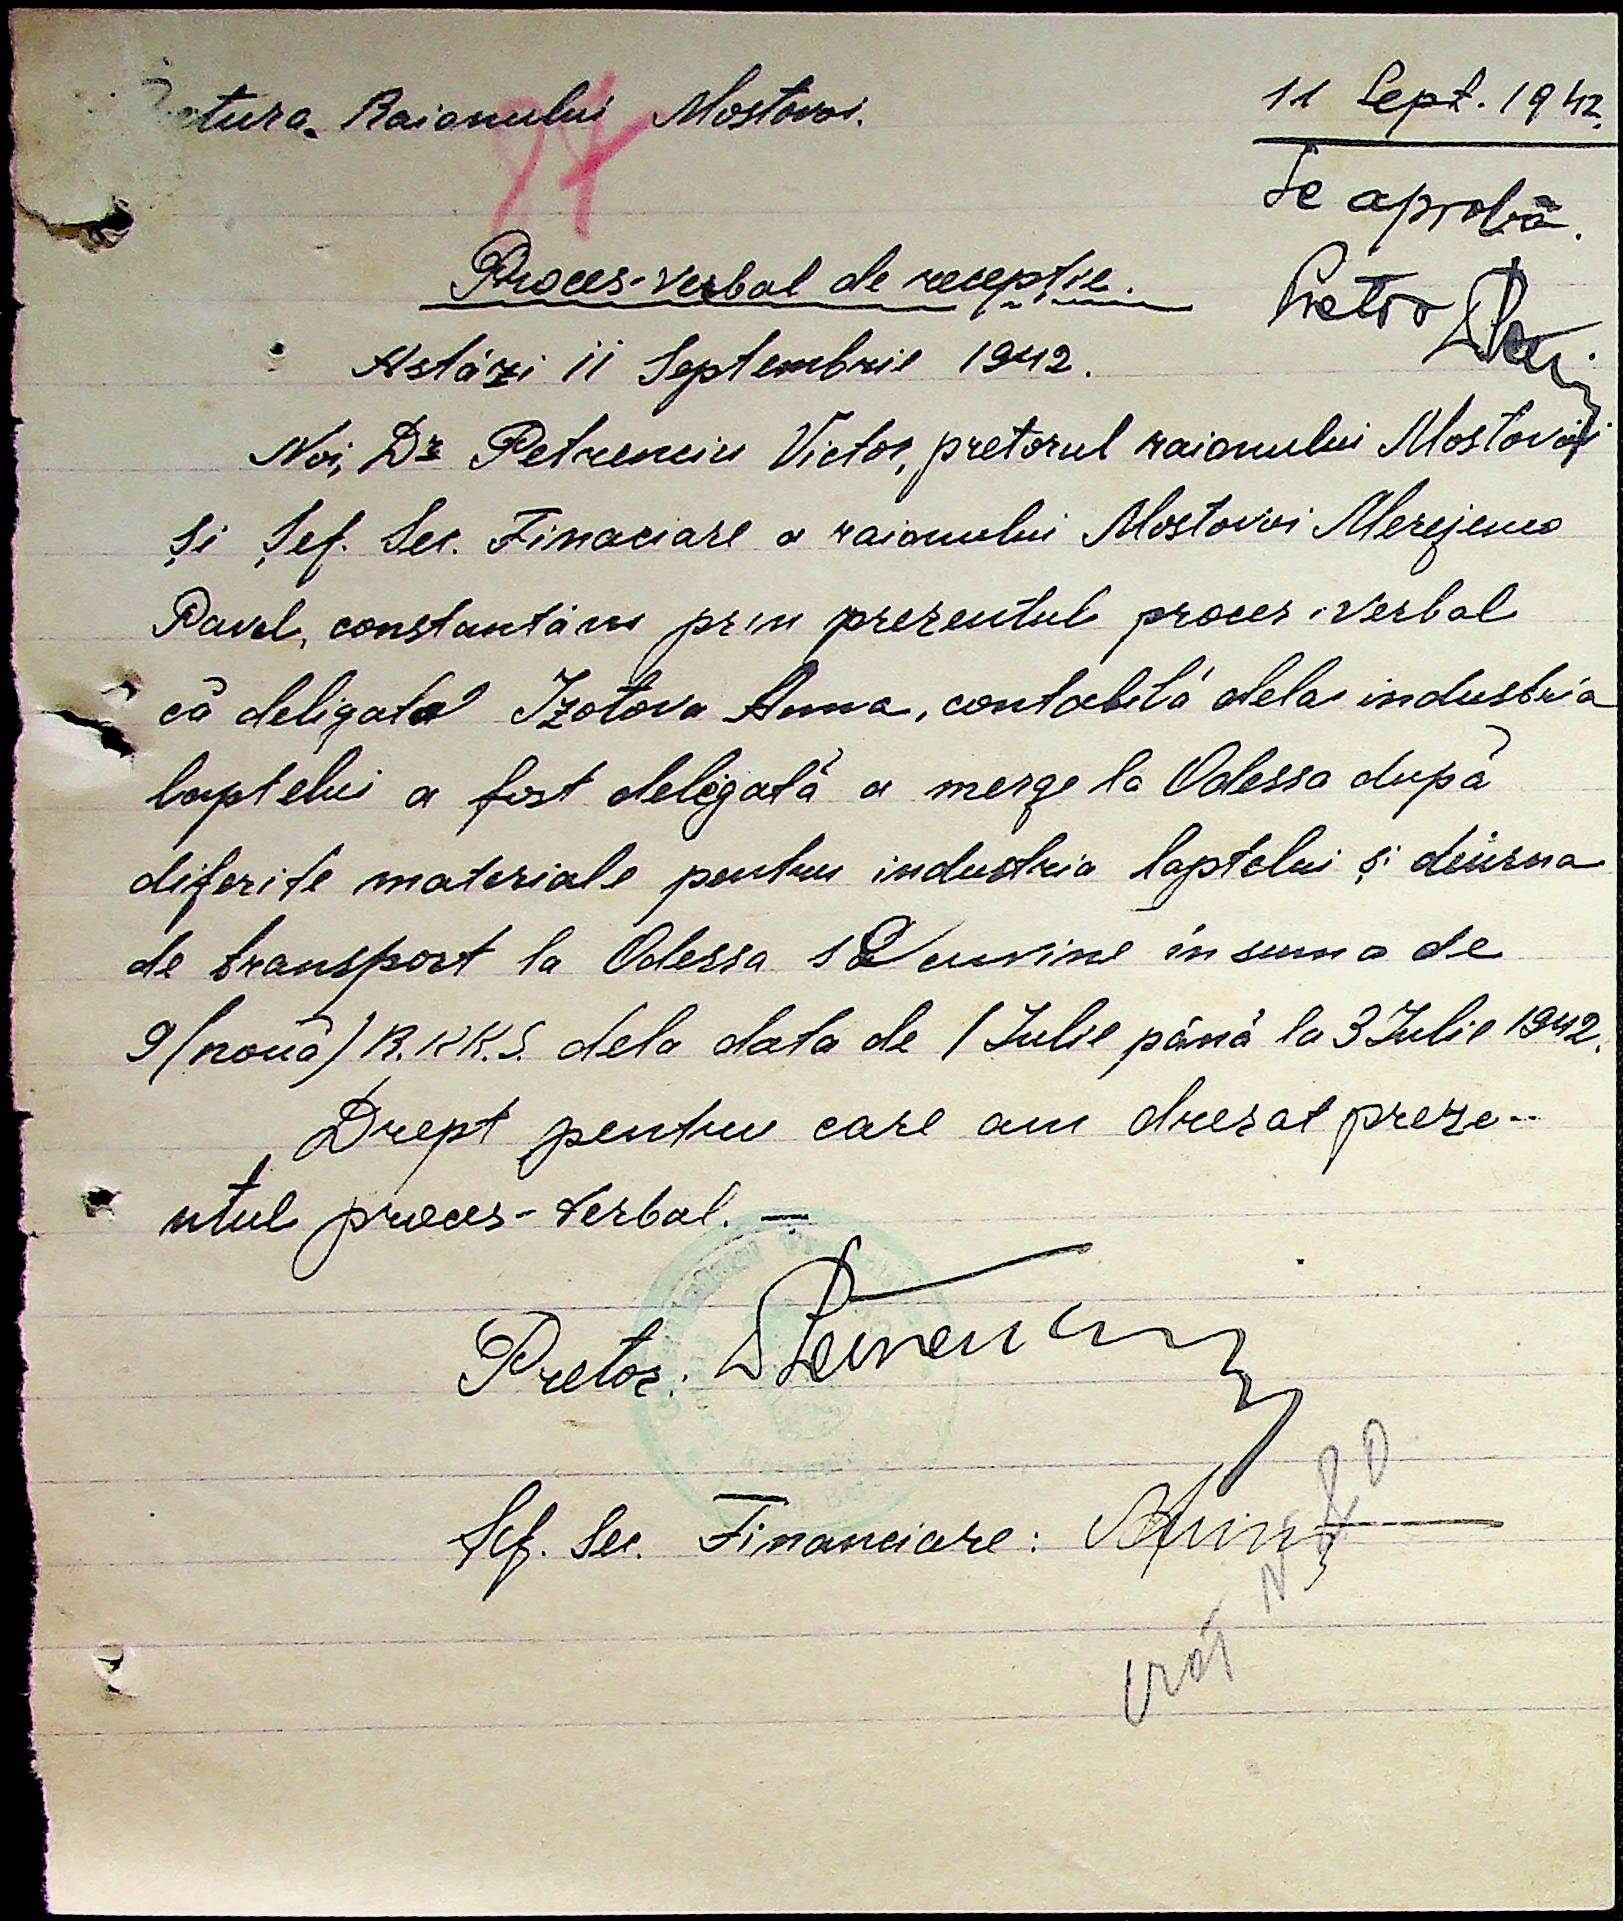 tura Raionului Mostovoi.
11 Sept. 1942.
97
Se aprobă.
Pretor
Proces-verbal de recepție.
Astăzi 11 Septembrie 1942.
Noi, Dr Petrenciu Victor, pretorul raionului Mostovoi
și Șef. Sec. Finaciare a raionului Mostovoi Merejenco
Pavel, constantăm prin prezentul proces-verbal
că deligata Izotova Anna, contabilă dela industria
laptelui a fost deligată a merge la Odessa după
diferite materiale pentru industria laptelui și diurna
de transport la Odessa se cuvine în suma de
9 (nouă) R.K.K.S. dela data de 1 Iulie până la 3 Iulie 1942.
Drept pentru care am drezat preze-
ntul proces-verbal. —
Pretor:
Șef. Sec. Financiare: